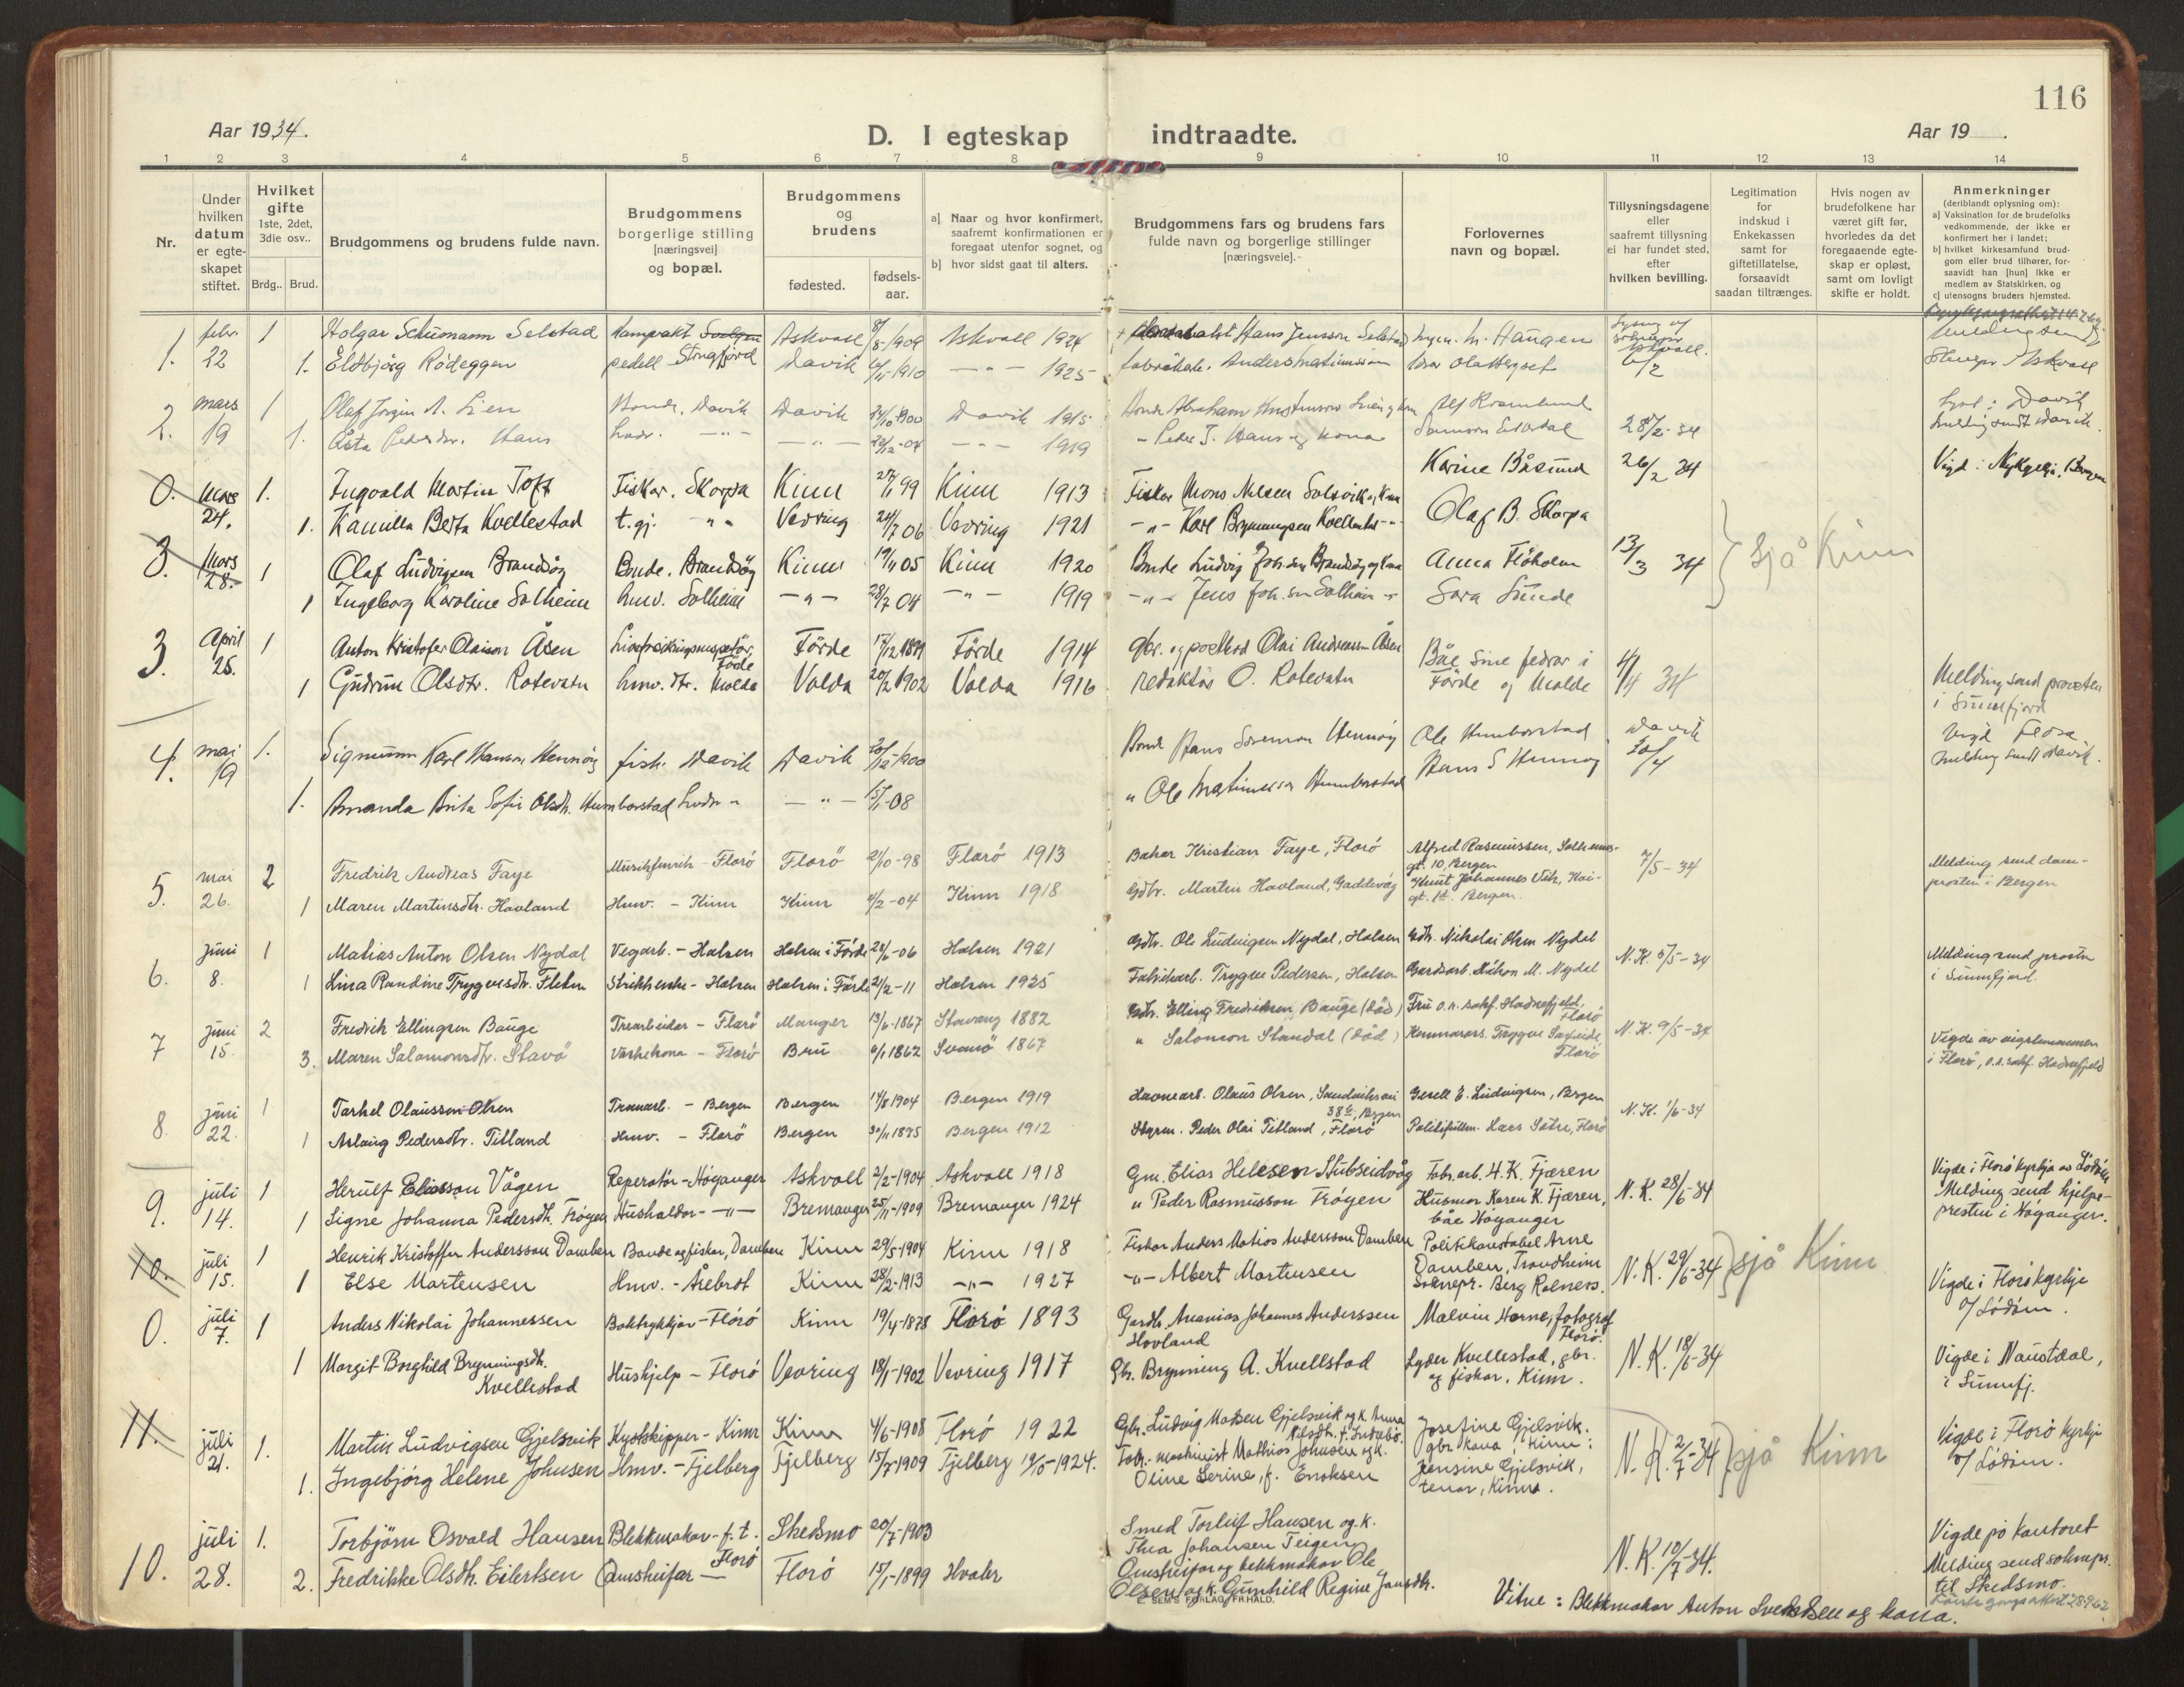 116
Aar 1934.
D. I egteskap indtraadte.
Aar 19 .
1 2 3 4 5 6 7 8 9 10 11 12 13 14
Nr.
Under hvilken datum er egteskapet stiftet.
Hvilket gifte 1ste, 2det, 3die osv..
Brdg.. Brud.
Brudgommens og brudens fulde navn.
Brudgommens borgerlige stilling [næringsvei] og bopæl.
Brudgommens og brudens
fødested. fødsels-aar.
a] Naar og hvor konfirmert, saafremt konfirmationen er foregaat utenfor sognet, og
b] hvor sidst gaat til alters.
Brudgommens fars og brudens fars fulde navn og borgerlige stillinger [næringsveie].
Forlovernes navn og bopæl.
Tillysningsdagene eller saafremt tillysning ei har fundet sted, efter hvilken bevilling.
Legitimation for indskud i Enkekassen samt for giftetillatelse, forsaavidt saadan tiltrænges.
Hvis nogen av brudefolkene har været gift før, hvorledes da det foregaaende egteskap er opløst, samt om lovligt skifte er holdt.
Anmerkninger (deriblandt oplysning om):
a] Vaksination for de brudefolks vedkommende, der ikke er konfirmert her i landet;
b] hvilket kirkesamfund brudgom eller brud tilhører, forsaavidt han [hun] ikke er medlem av Statskirken, og
c] utensogns bruders hjemsted.
1. febr. 22 1 Holgar Schumann Selstad Askvoll 1909 Askvoll 1924 Hans Jensson Selstad M. Haugen
1. Eldbjørg Rødeggen Stongfjord Davik 1910 — " — 1925 Anders 6/2 Askvoll
2. mars 19 1 Olaf Jørgen A. Lien Bonde, Davik Davik 24/10-1900 Davik 1915 Bonde Abraham 28/2-34 Davik
1. Åsta Pedersdr. Hans — " — — " — — " — 1919 " Peder T. Hans og kona
0. Mars 24. 1. Ingvald Martin Toft Fiskar, Skorpa Kinn 27/1 99 Kinn 1913 Fiskar Mons Nilsen Solsvik og kona Karine Båsund 26/2 34 Vigd i Nykyrkja Bergen
1. Kamilla Berta Kvellestad t.gj. " Vevring 24/7 06 Vevring 1921 — " — Karl Brynningsen Kvellestad — " — Olaf B. Skorpa
3. Mars 28. 1 Olaf Ludvigsen Brandsøy Bonde, Brandsøy Kinn 19/11 05 Kinn 1920 Bonde Ludvig Joh.sen Brandsøy og kona Anna Fløholm 13/3 34 Sjå Kinn
1 Ingeborg Karoline Solheim hmv. Solheim — " — 28/7 04 — " — 1919 — " — Jens Joh.sen Solheim Sara Sunde
3. April 25. 1 Anton Kristofer Olaison Åsen Førde Førde 17/12 1899 Førde 1914 gbr. og postbod Olai Andreassen Åsen Båe sine fedrar i 4/4 34 Melding send prosten
1 Gudrun Olsdtr. Rotevatn hmv. dtr. Molde Volda 20/2 1902 Volda 1916 redaktør O. Rotevatn Førde og Molde i Sunnfjord
4. mai 19 1. Sigmunn Karl Hansen Hennøy fisk. Davik Davik 1900 Bonde Hans Sørensen Hennøy Ole Humborstad Davik 20/4 Vigd Florø
1. Amanda Brita Sofie Olsdtr. Humborstad — " — 15/1-08 " Ole Martinussen Humborstad Hans S Hennøy Melding sendt Davik.
5. mai 26. 2 Fredrik Andreas Faye Florø Florø 21/10-98 Florø 1913 Bakar Kristian Faye, Florø Alfred Rasmussen, gt. 10, Bergen 7/5-34 Melding send dom-
1 Maren Martinsdtr. Hovland Hmv. - Kinn Kinn 4/2-04 Kinn 1918 Gdbr. Martin Hovland, Gaddevåg Knut Johannes gt. Bergen. prosten i Bergen
6. juni 8. 1 Matias Anton Olsen Nydal Vegarb. - Halsen Halsen i Førde 28/6-06 Halsen 1921 Gdbr. Ole Ludvigsen Nydal, Halsen Gdbr. Nikolai Olsen Nydal N. K. 5/5-34 Melding send prosten
1 Lina Randine Trygvesdtr. Fleten Halsen Halsen i Førde 21/2-11 Halsen 1925 Fabrikarb. Trygve Pedersen, Halsen Gardsarb. Håkon M. Nydal i Sunnfjord.
7 juni 15. 2 Fredrik Ellingsen Bauge Trearbeidar - Florø Manger 13/6-1867 Stavang 1882 Gdbr. Elling Fredriksen Bauge (død) Fru o.r. sakf. Hadnefjeld, Florø N. K. 9/5-34 Vigde av
3. Maren Salomonsdtr. Stavø Vaskekona - Florø Bru 6/1 1862 Svanø 1867 " Salomon Standal (død) Trygve Florø i Florø, o.r. sakf. Hadnefjeld
8. juni 22. 1 Torkel Olaussen Olsen Bergen Bergen 14/8 1904 Bergen 1919 Havnearb. Olaus Olsen, 38 b, Bergen Gesell E. Ludvigsen, Bergen N. K. 1/6-34
1 Aslaug Pedersdtr. Titland Hmv. - Florø Bergen 30/11 1895 Bergen 1912 Styrm. Peder Olai Titland, Florø Politifullm. Lars Sætre, Florø
9. juli 14. 1 Herulf Eliasson Vågen Reperatør - Høyanger Askvoll 2/2-1904 Askvoll 1918 Gm. Elias Helesen Stubseidvåg Fabr.arb. H. K. Fjæren N. K. 28/6-34 Vigde i Florø kyrkja av Lødøin
1 Signe Johanna Pedersdtr. Frøyen Hushaldar - — " — Bremanger 25/11-1909 Bremanger 1924 " Peder Rasmusson Frøyen Husmor Karen K. Fjæren, båe Høyanger Melding send hjelpe-
presten i Høyanger.
10. juli 15. 1 Henrik Kristoffer Andersson Domben Bonde og fiskar, Domben Kinn 29/5-1904 Kinn 1918 Fiskar Anders Matios Andersson Domben Politikonstabel Arne Domben, Trondheim N. K. 29/6-34 sjå Kinn
1 Else Martensen Hmv. - Årebrot Kinn 28/2-1913 — " — 1927 — " — Albert Martensen Soknepr. Berg Rolness. Vigde i Florø kyrkje v/ Lødøin.
0. juli 7. 1 Anders Nikolai Johannessen Boktrykkjar - Florø Kinn 19/4-1878 Florø 1893 Gardb. Ananias Johannes Anderssen Hovland Malvin Horne, fotograf Florø.
1 Margit Borghild Brynningsdtr. Kvellestad Hushjelp - Florø Vevring 18/1-1902 Vevring 1917 Gbr. Brynning A. Kvellstad Lyder Kvellestad, gbr. og fiskar, Kinn. N. K. 18/6-34 Vigde i Naustdal, i Sunnfj.
11. juli 21. 1. Martin Ludvigsen Gjelsvik Kystskipper - Kinn Kinn 4/6-1908 Florø 1922 Gbr. Ludvig Matsen Gjelsvik og k. Anna Nilsdtr. f. Indrebø. Josefine Gjelsvik, gbr. kona, Kinn; N. K. 2/7-34 sjå Kinn Vigde i Florø kyrkje v/ Lødøin.
1. Ingebjørg Helene Johnsen Hmv. - Fjelberg Fjelberg 15/7-1909 Fjelberg 1924. Fabr. maskinist Mathias Johnsen og k. Oline Serine, f. Enoksen Jensine Gjelsvik, tenar, Kinn.
10. juli 28. 1. Torbjørn Osvald Hansen Blekkmakar - f. t. Florø Skedsmo 20/7-1903 Smed Torleif Hansen og k. Thea Johansen Teigen N. K. 10/7-34. Vigde på kontoret
2. Fredrikke Olsdtr. Eilertsen Florø 15/1-1899 Hvaler blekkmakar Ole Olsen og k. Gunhild Regine Jansdtr. Melding send soknepr. til Skedsmo.
E. SEM'S FORLAG, FR.HALD.
Vitne: Blekkmakar Anton Svendsen og kona.